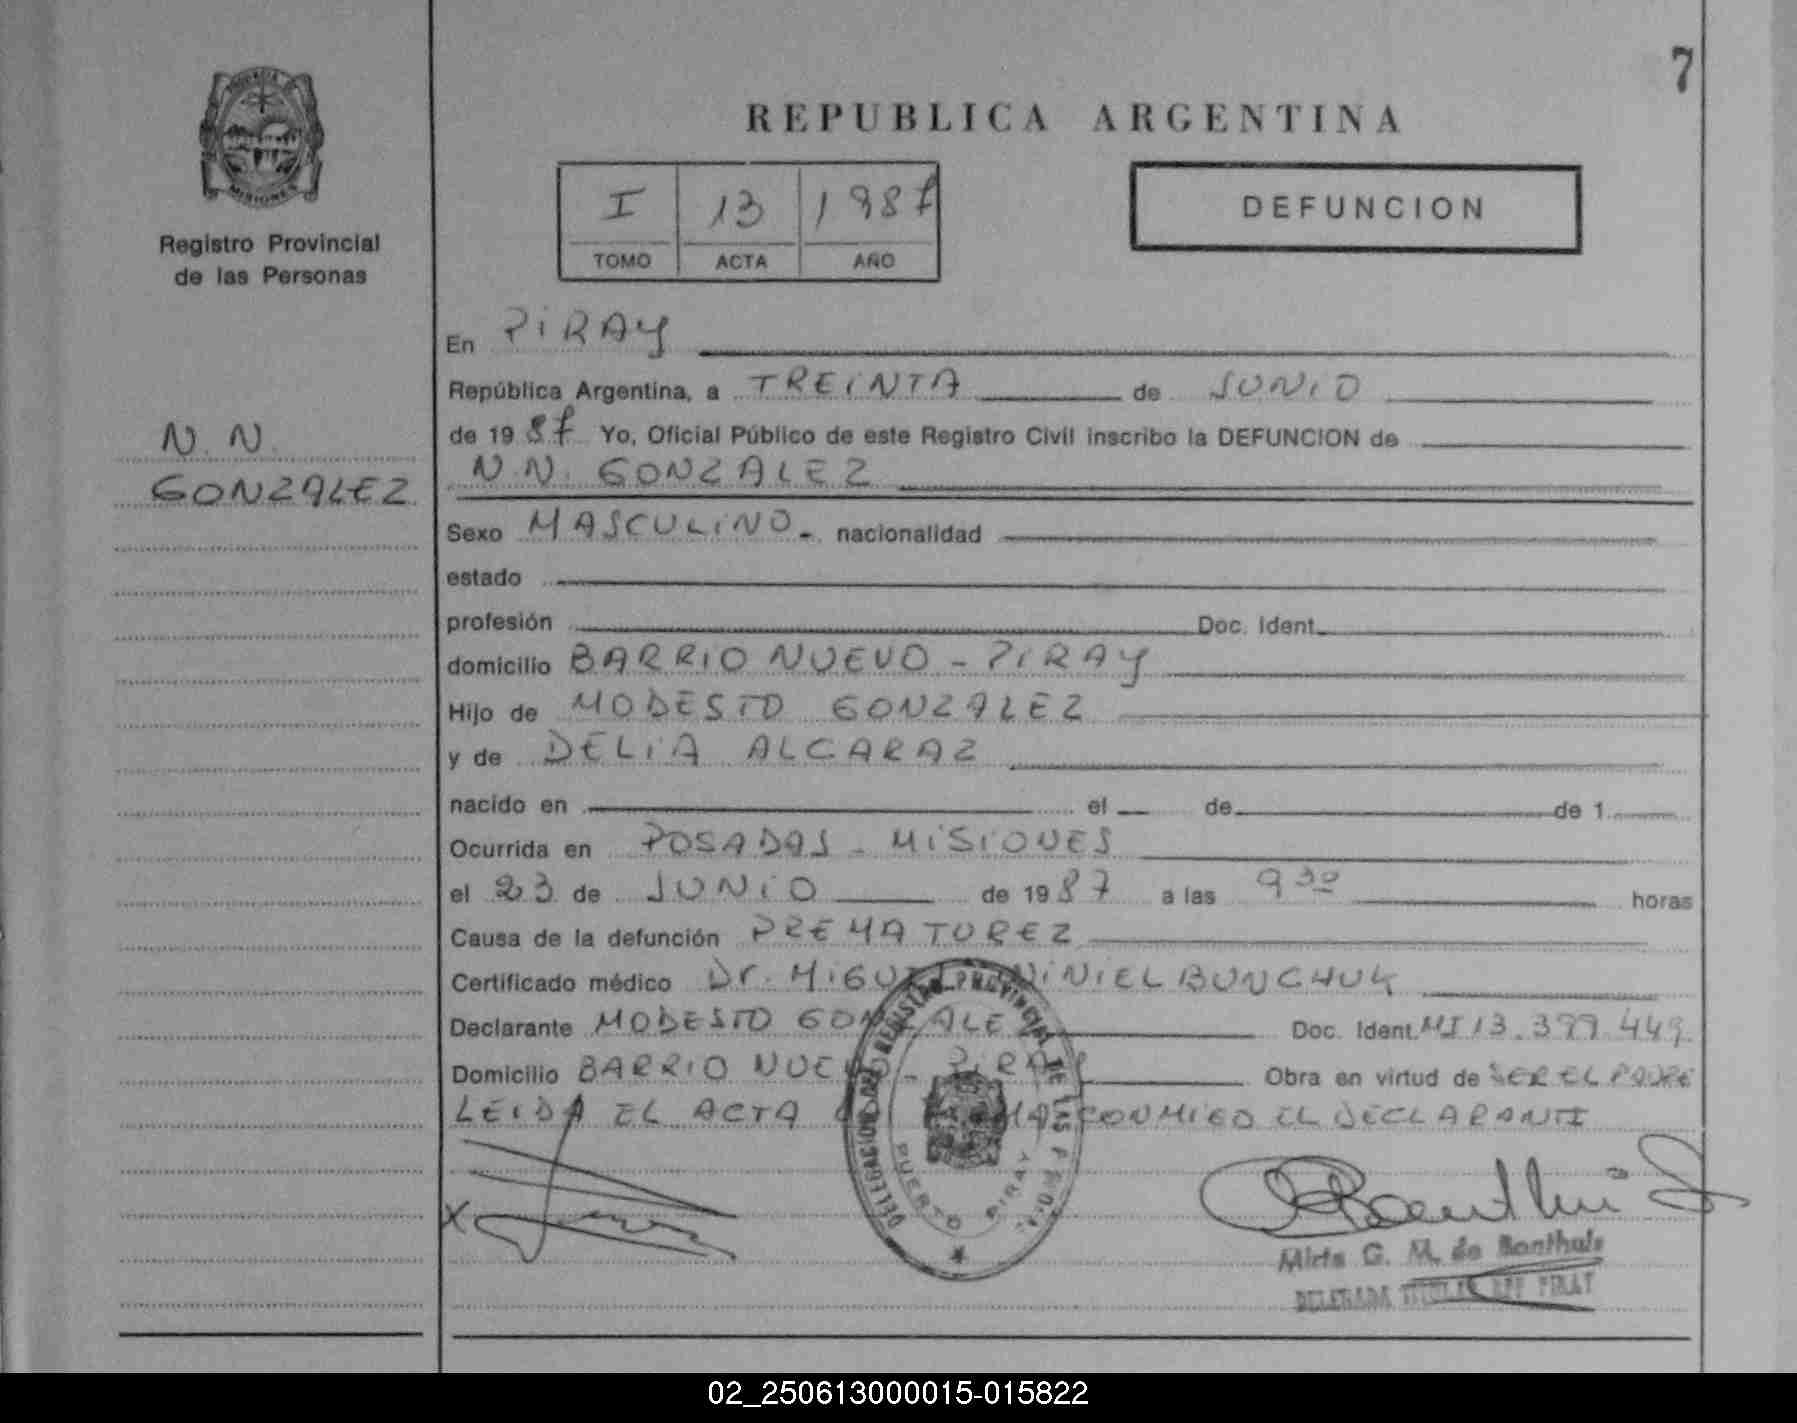 7
REPUBLICA ARGENTINA
MISIONES
Registro Provincial
de las Personas
I 13 1987
TOMO ACTA AÑO
DEFUNCION
N. N.
GONZALEZ
En PIRAY
República Argentina, a TREINTA de JUNIO
de 1987 Yo, Oficial Público de este Registro Civil inscribo la DEFUNCION de
N.N. GONZALEZ
Sexo MASCULINO - nacionalidad
estado
profesión Doc. Ident.
domicilio BARRIO NUEVO - PIRAY
Hijo de MODESTO GONZALEZ
y de DELIA ALCARAZ
nacido en el de de 1
Ocurrida en POSADAS - MISIONES
el 23 de JUNIO de 1987 a las 9 30 horas
Causa de la defunción PREMATUREZ
Certificado médico Dr. MIGUEL BUNCHUK
Declarante MODESTO GONZALEZ Doc. Ident. MI 13.399.449
Domicilio BARRIO NUEVO - PIRAY Obra en virtud de SER EL PADRE
LEIDA EL ACTA CONMIGO EL DECLARANTE
DELEGACION REGISTRO PROVINCIAL DE LAS PERSONAS
PUERTO PIRAY
Mirta G. M. de
DELEGADA TITULAR PIRAY
02_250613000015-015822